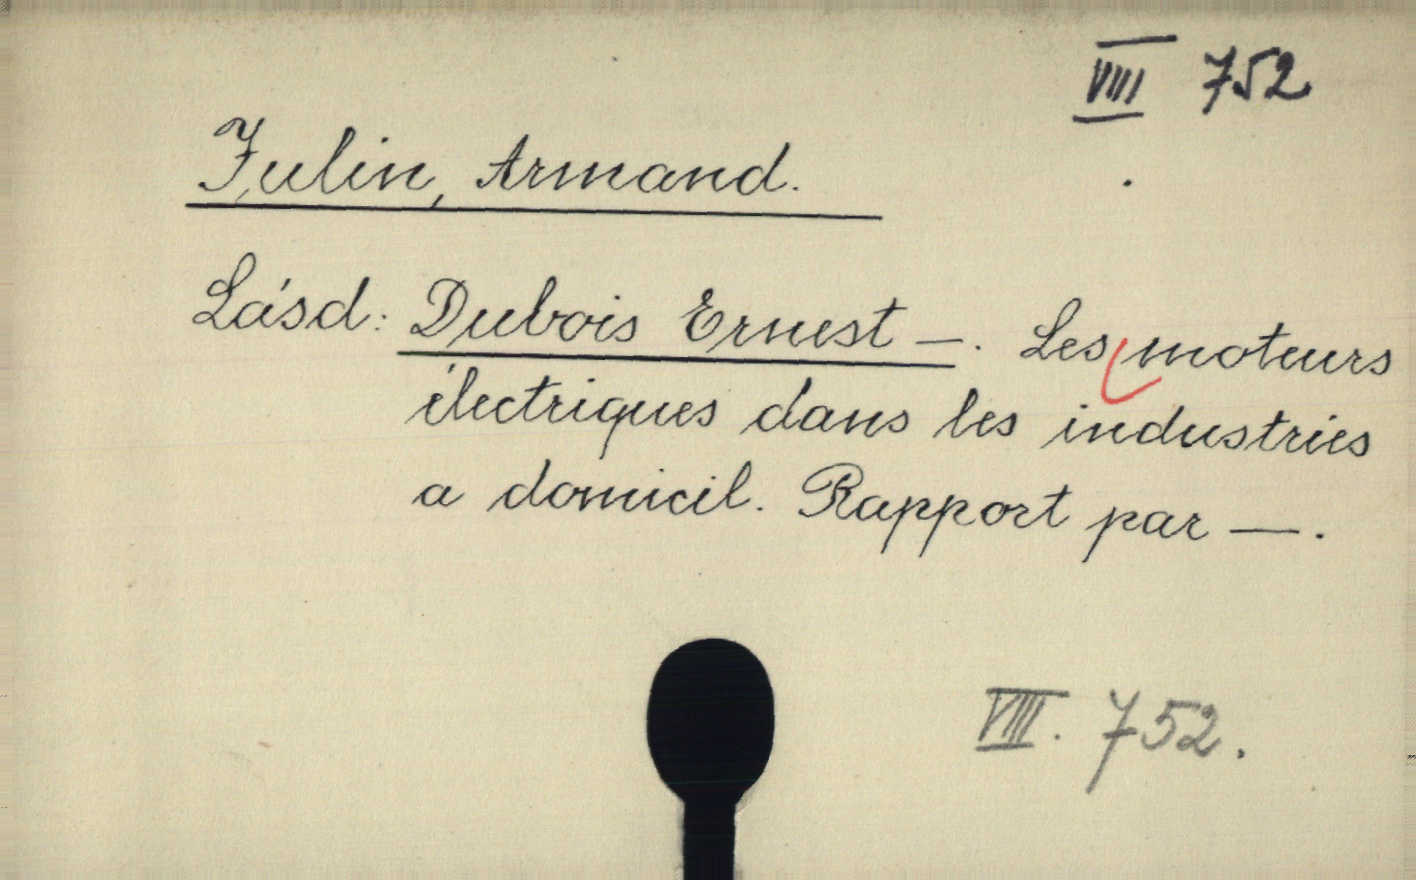 VIII 752
Julin, Armand.
Lásd: Dubois Ernest —. Les moteurs
électriques dans les industries
a domicil. Rapport par —.
VIII. 752.